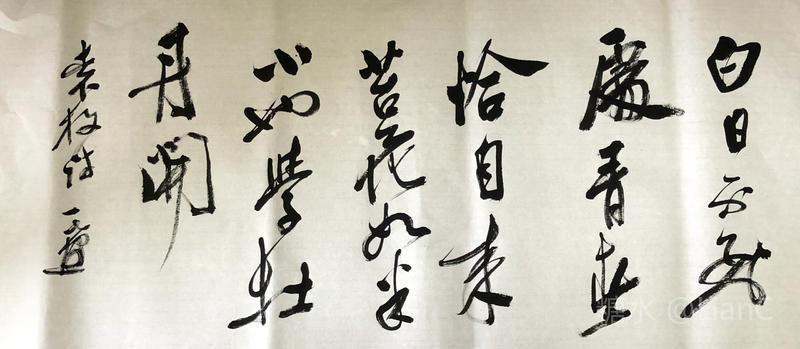 白日不到
處青春
恰自来
苔花如米
小也學牡
丹開
袁枚诗